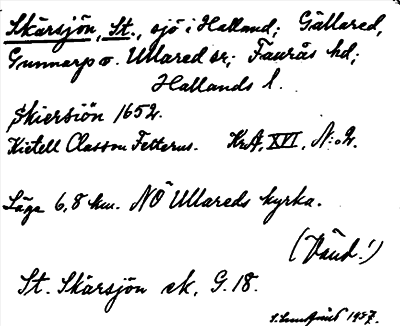 Skärsjön, St., sjö i Halland; Gällared,
Gunnarp o. Ullared sr; Faurås hd;
Hallands l.
Skiersiön 1652.
Kietell Classon Felterus. KrA, XVI, N:o 2.
Läge 6,8 km. NÖ Ullareds kyrka.
(Vänd!)
St. Skärsjön ek. G. 18.
1957.